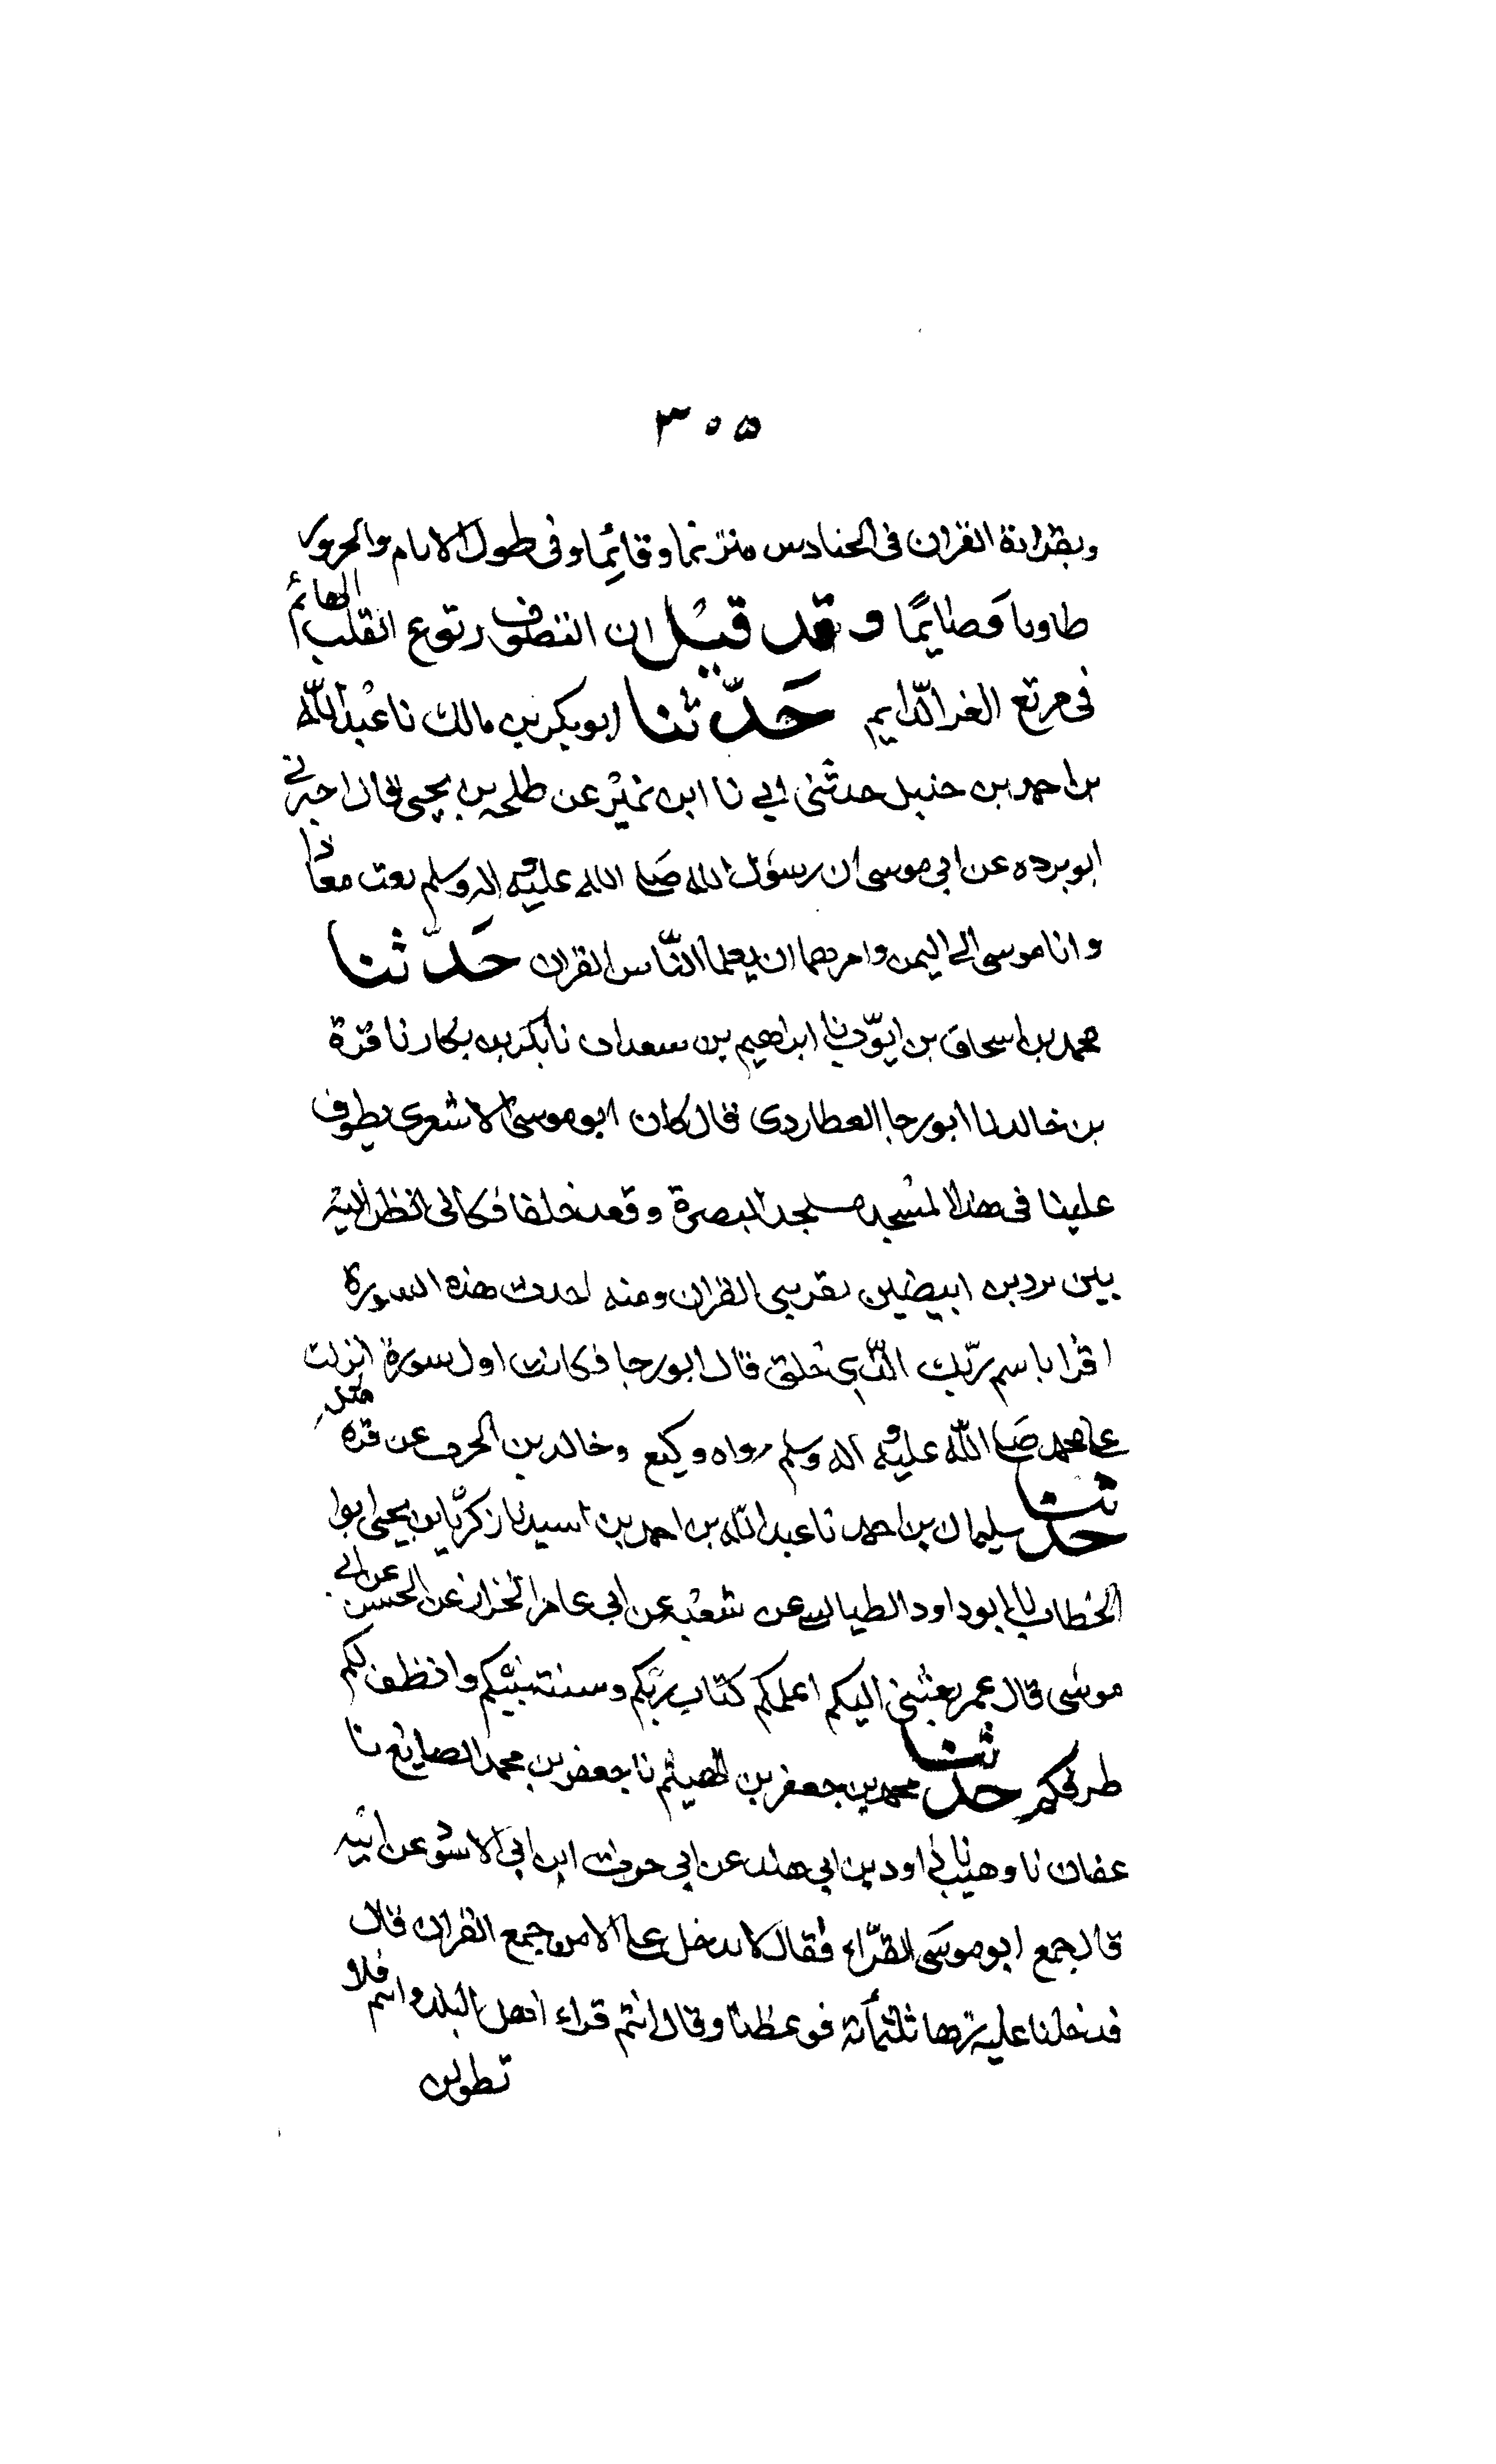 ٣٠٥
وبقراءة القران فى الحنادس مترنما وقائما وفى طول الايام والحرور
طاويا وصايمًا وقد قيل ان التصوف رتوع القلب الهائم
فى مرتع العز الدّايم حَدّثنا ابو بكر بن مالك نا عبد الله
بن احمد بن حنبل حدثنى ابي نا ابن نمير عن طلحه بن يحيى قال اخبرنى
ابو برده عن ابى موسى ان رسول الله صَلى الله عليه واله وسلم بعث معاذا
وانا موسى الى اليمن وامرهما ان يعلما النّاس القران حَدّثنا
محمد بن اسحاق بن ايّوب نا ابراهيم بن سعدان نا بكر بن بكار نا قرّة
بن خالد نا ابو رجا العطاردى قال كان ابو موسى الاشعرى يطوف
علينا فى هذا المسجد مسجد البصرة وقعد خلفا فكانى انظر اليه
بين بردين ابيضين يقريى القران ومنه اخذت هذه السورة
اقرا باسم ربّك الّذي خلق قال ابو رجا فكانت اول سورة انزلت
على محمد صَلى الله عليه واله وسلم رواه وكيع وخالد بن الحرث عن قره مثله
حدثنا سليمان بن احمد نا عبد الله بن احمد بن اسيد نا زكريّا بن يحيى ابوا
الخطاب نا ابو داود الطيالسى عن شعبه عن ابى عامر الخزاز عن الحسن عن ابي
موسى قال عمر بعثنى اليكم اعلمكم كتاب ربّكم وسنته نبيّكم وانظف لكم
طرقكم حدثنا محمد بن جعفر بن الهيثم نا جعفر بن محمد الصايغ نا
عفان نا وهيب نا داود بن ابى هند عن ابى حرب ابن ابى الاسود عن ابيه
قال جمع ابو موسَى القرّاء فقال لا تدخل على الا من جمع القران قال
فدخلنا عليه زها ثلثمائة فوعظنا وقال انتم قراء اهل البلد وانتم فلا
تطولن